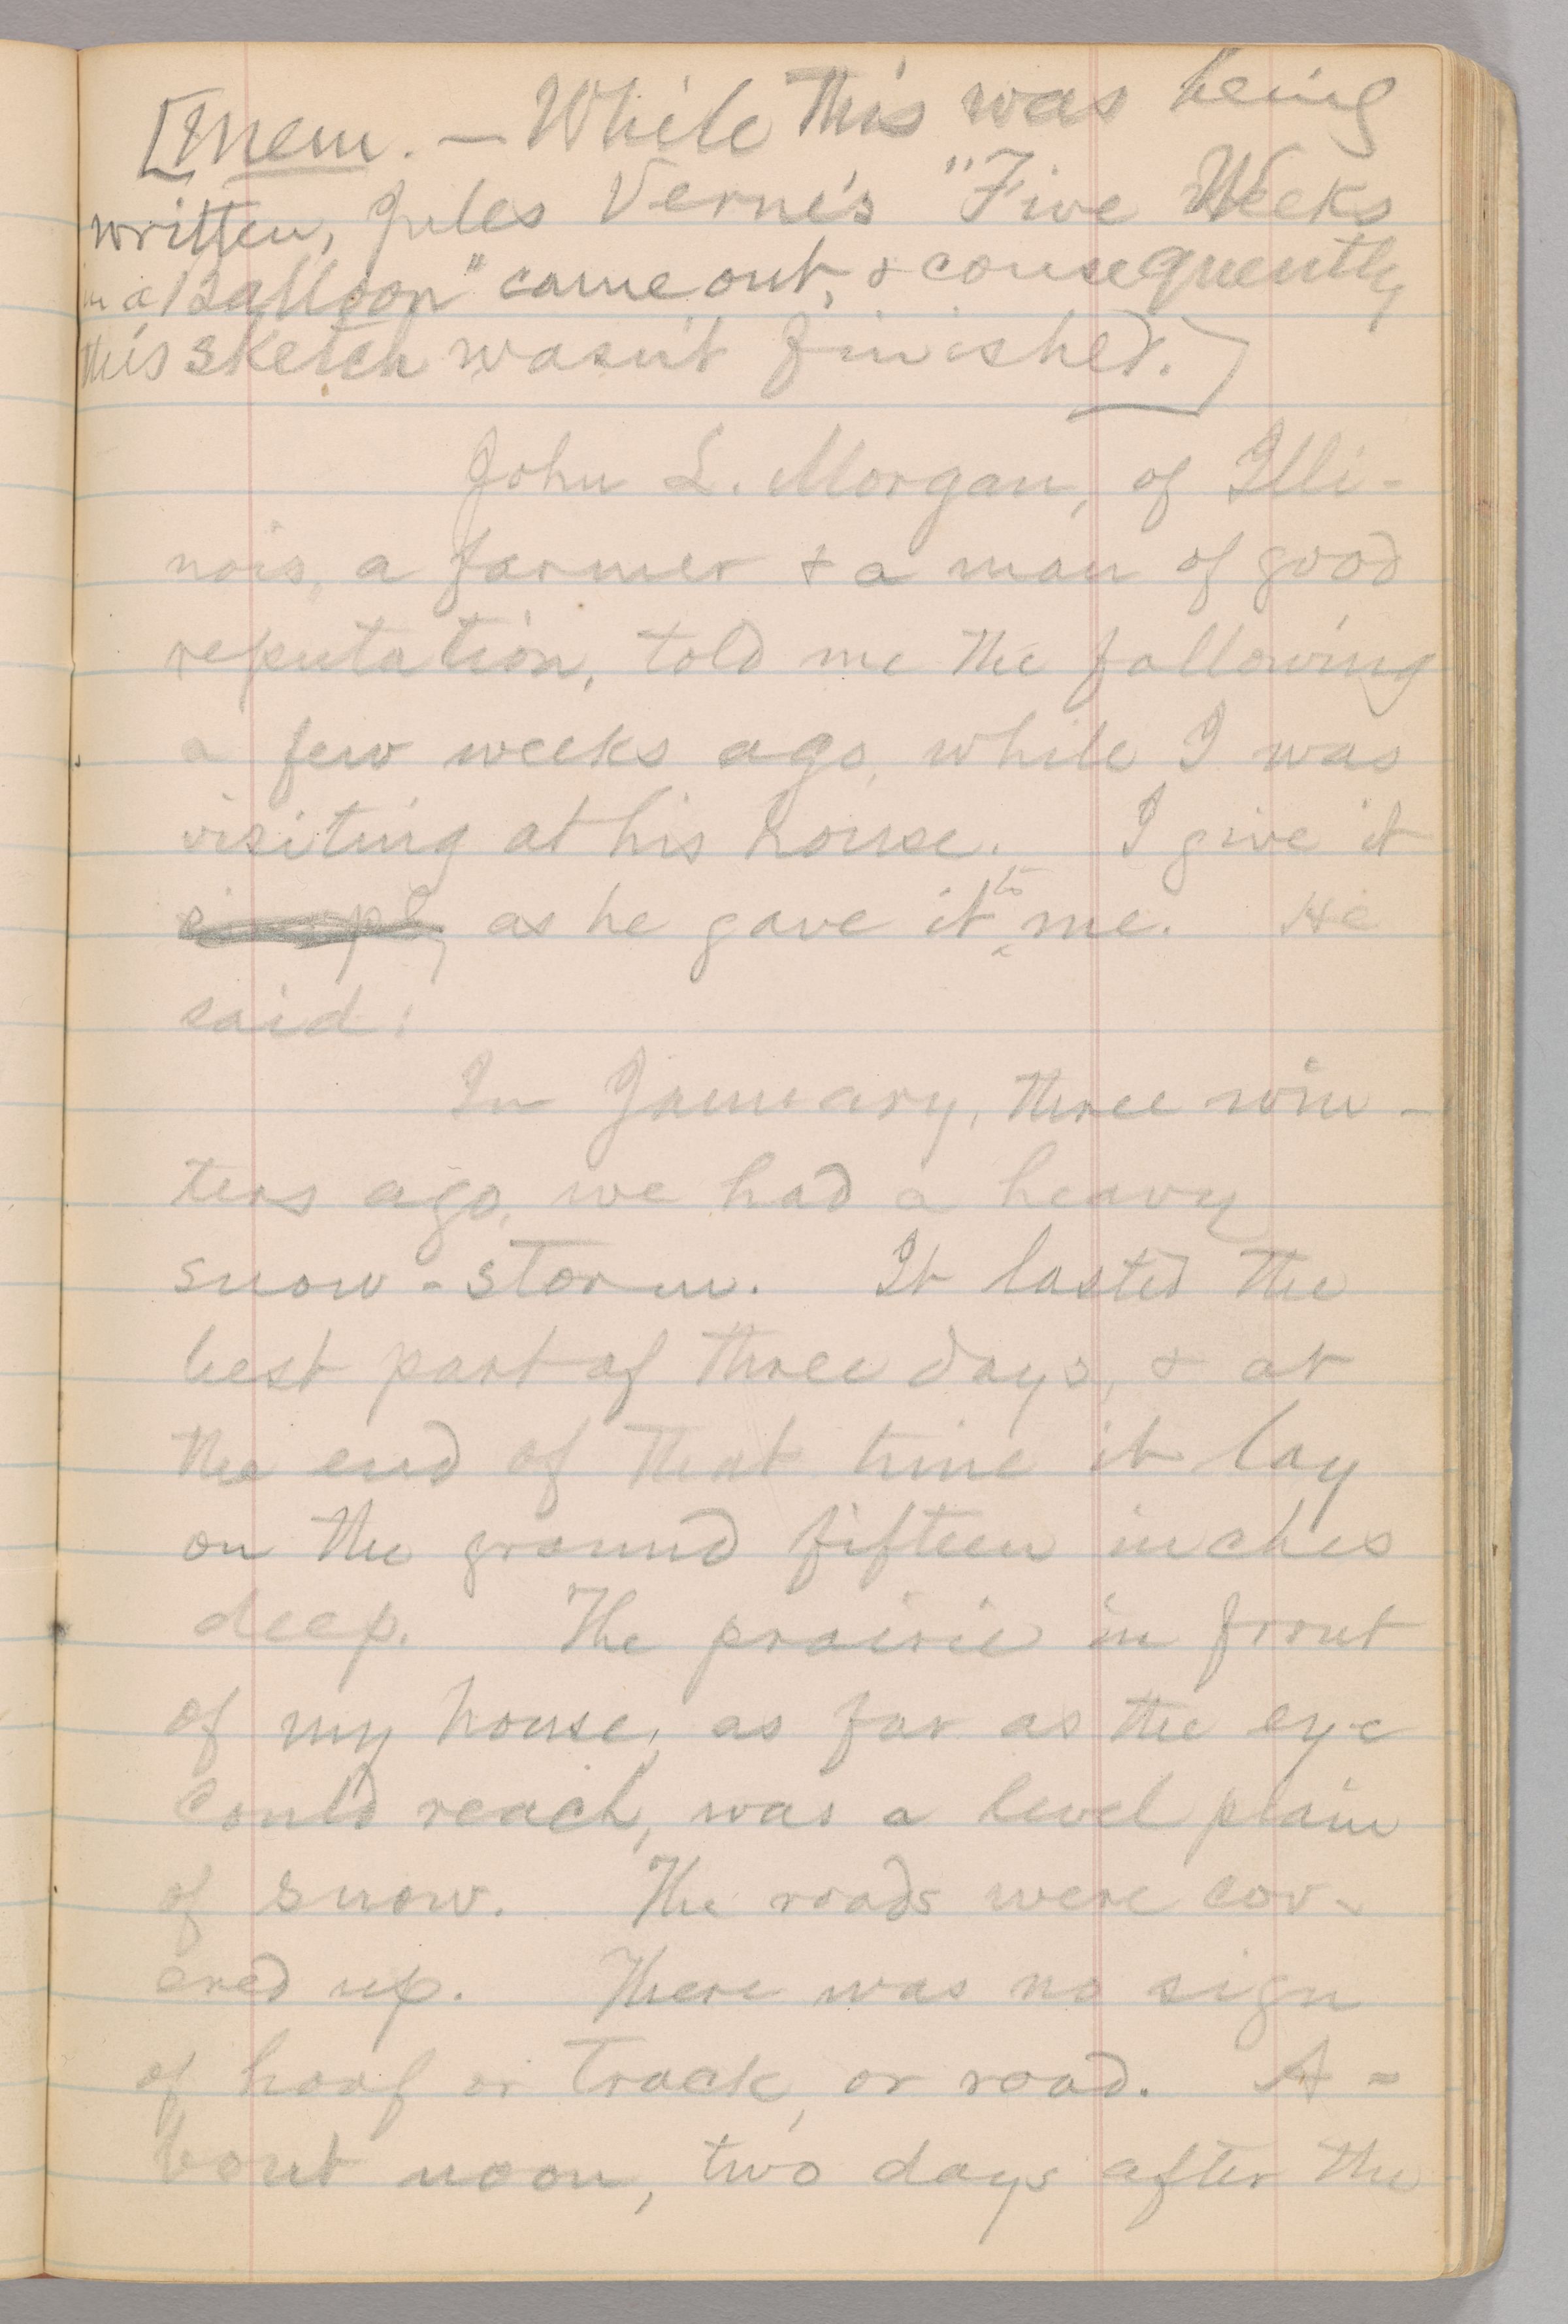 [Mem. — While this was being
written, Jules Verne's "Five Weeks
in a Balloon" came out, & consequently
this sketch wasn't finished.]
John L. Morgan, of Illi-
nois, a farmer & a man of good
reputation, told me the following
a few weeks ago, while I was
visiting at his house. I give it
simply as he gave it to me. He
said:
In January, three win-
ters ago, we had a heavy
snow-storm. It lasted the
best part of three days, & at
the end of that time it lay
on the ground fifteen inches
deep. The prairie in front
of my house, as far as the eye
could reach, was a level plain
of snow. The roads were cov-
ered up. There was no sign
of hoof or track, or road. A-
bout noon, two days after the